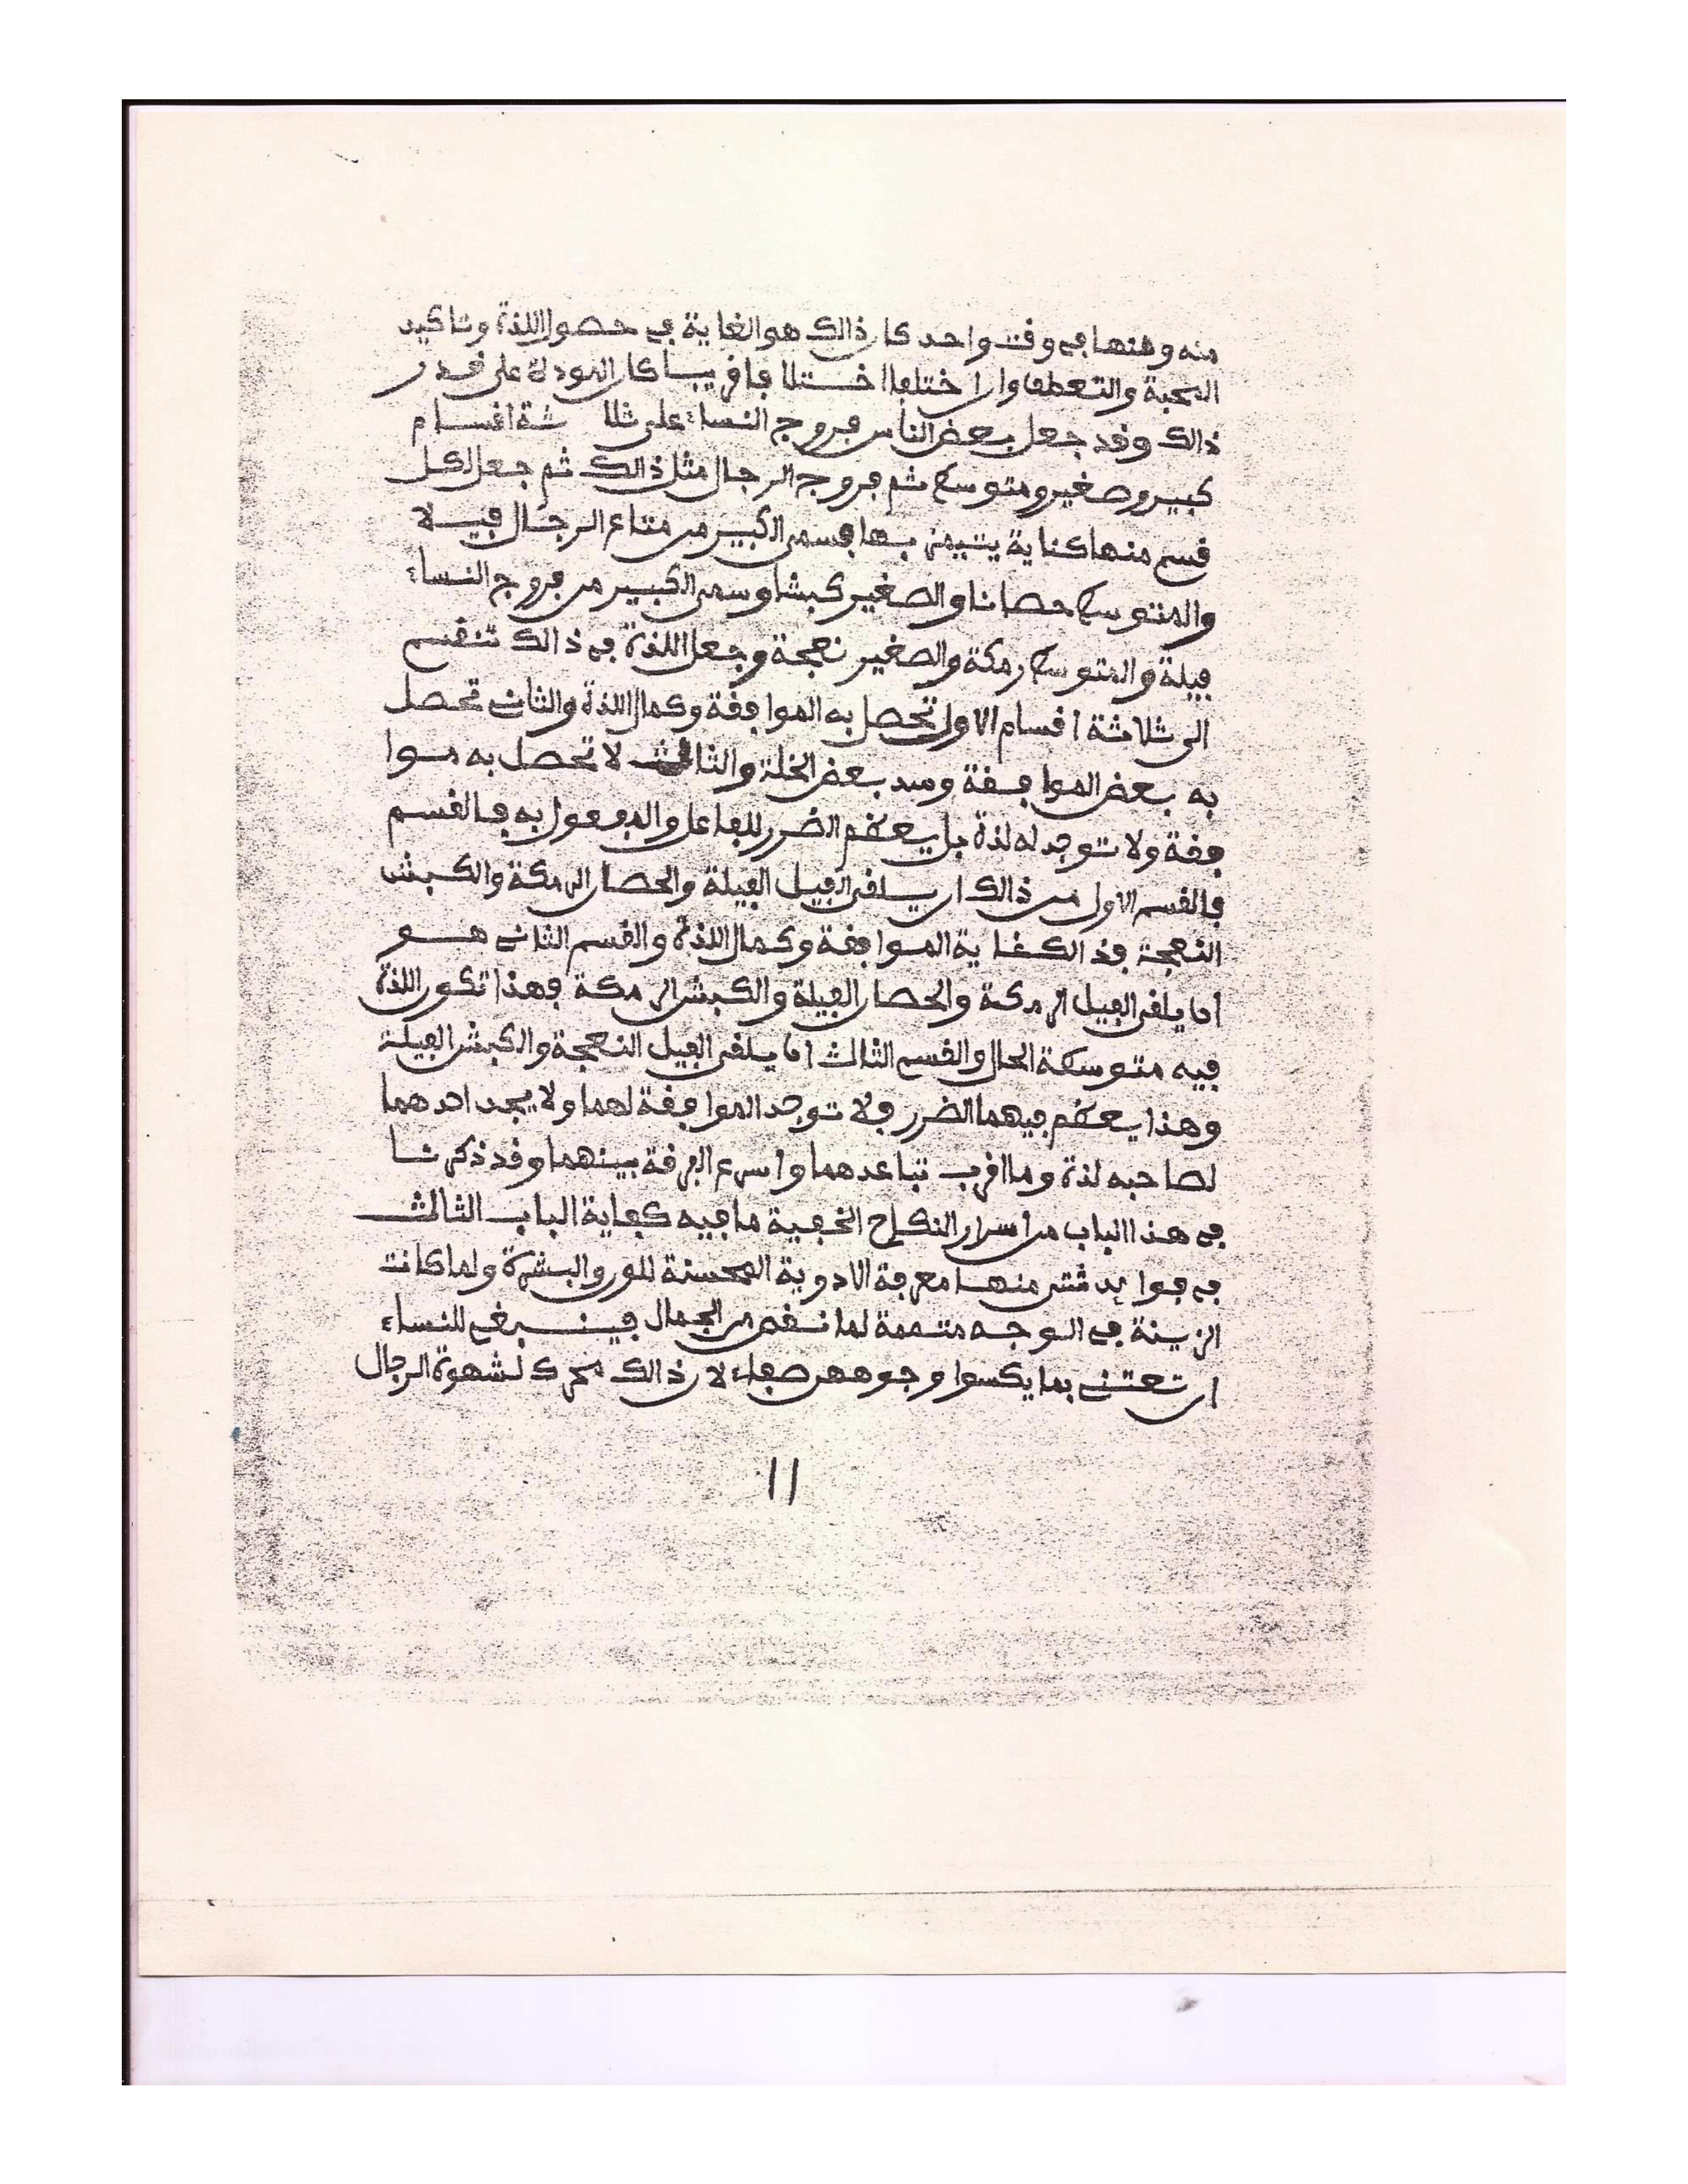 منه ومنها في وقت واحد كان ذالك هو الغاية في حصول اللذة وتاكيد
المحبة والتعطف وان اختلفا اختلافا قريبا كان المودة على قدر
ذالك وقد جعل بعض الناس فروج النساء على ثلا ثة اقسام
كبير وصغير ومتوسط ثم فروج الرجال مثل ذالك ثم جعل لكل
قسم منها كناية يتيمن بها فسمى الكبير من متاع الرجال فيلا
والمتوسط حصانا والصغير كبشا وسمى الكبير من فروج النساء
فيلة والمتوسط رمكة والصغير نعجة وجعل اللذة في ذالك تنقسم
الى ثلاثة اقسام الاول تحصل به الموافقة وكمال اللذة والثاني تحصل
به بعض الموافقة وسد بعض الخلة والثالث لا تحصل به موا
فقة ولا توجد له لذة بل يعظم الضرر للفاعل والمفعول به فالقسم
فالقسم الاول من ذالك ان يلقى الفيل الفيلة والحصان الرمكة والكبش
النعجة فذالك غاية الموافقة وكمال اللذة والقسم الثاني هو
اما يلقى الفيل الرمكة والحصان الفيلة والكبش الرمكة فهذا تكون اللذة
فيه متوسطة الحال والقسم الثالث اما يلقى الفيل النعجة والكبش الفيلة
وهذا يعظم فيهما الضرر ولا توجد الموافقة لهما ولا يجد احدهما
لصاحبه لذة وما اقرب تباعدهما واسرع الفرقة بينهما وقد ذكرنا
في هذا الباب من اسرار النكاح الخفية ما فيه كفاية الباب الثالث
في فوائد شتى منها معرفة الادوية المحسنة للون والبشرة ولما كانت
الزينة في الوجه متممة لما نقص من الجمال فينبغي للنساء
ان تعتني بما يكسوا وجوههن صفاء لان ذالك محرك لشهوة الرجال
11